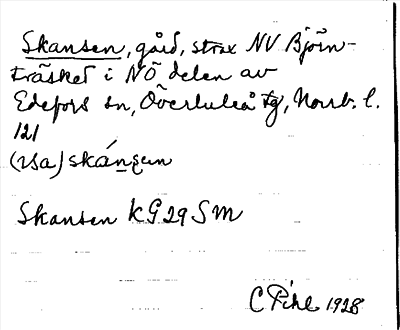 Skansen, gård, strax NV Björn-
träsket i NÖ delen av
Edefors sn, Överluleå tg, Norrb. l.
121
(usa) skánsen
Skansen KG29 SM
C Pihl 1928